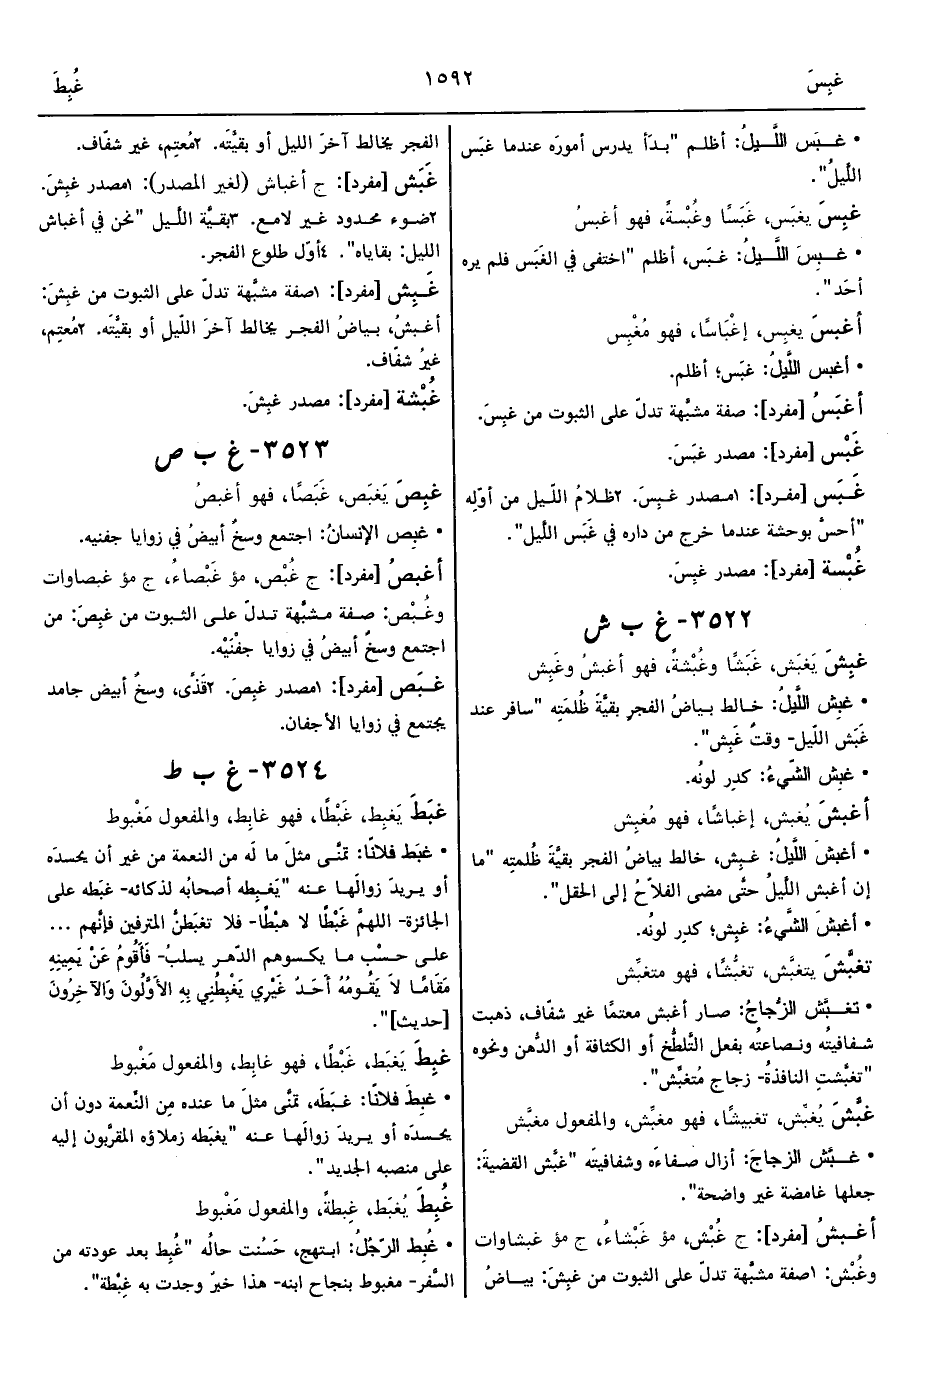 غبِسَ
١٥٩٢
غُبِطَ
• غـبَس اللَّـيلُ: أظلـم "بـدأ يدرس أمورَه عندما غبَس
اللَّيلُ".
غبِسَ يغبَس، غَبَسًا وغُبْسةً، فهو أغبسُ
• غـبِسَ اللَّـيلُ: غـبَس، أظلم "اختفى في الغَبَس فلم يره
أحَد".
أغبسَ يغبِس، إغْبَاسًا، فهو مُغْبِس
• أغبس اللَّيلُ: غبَس؛ أظلم.
أغبَسُ [مفرد]: صفة مشبَّهة تدلّ على الثبوت من غبِسَ.
غَبْس [مفرد]: مصدر غبَسَ.
غَـبَس [مفرد]: ١مـصدر غـبِسَ. ٢ظـلامُ اللّـيل من أوّلِه
"أحسَّ بوحشة عندما خرج من داره في غَبَس اللَّيل".
غُبْسة [مفرد]: مصدر غبِسَ.
٣٥٢٢- غ ب ش
غبِشَ يَغبَش، غَبَشًا وغُبْشةً، فهو أغبشُ وغَبِش
• غبِش اللَّيلُ: خـالط بـياضُ الفجرِ بقيَّةَ ظُلمَتِه "سافر عند
غَبَش اللّيل- وقتٌ غَبِش".
• غبِش الشَّيءُ: كدر لونُه.
أغبشَ يُغبش، إغباشًا، فهو مُغبِش
• أغبشَ اللَّيلُ: غـبِش، خالط بياضُ الفجر بقيَّةَ ظُلمتِه "ما
إن أغبش اللَّيلُ حتَّى مضى الفلاّحُ إلى الحقل".
• أغبشَ الشَّيءُ: غبِش؛ كدر لونُه.
تغبَّشَ يتغبَّش، تغبُّشًا، فهو متغبِّش
• تغـبَّش الزُّجاجُ: صـار أغبش معتمًا غير شفّاف، ذهبت
شـفافيتُه ونـصاعتُه بفعل التَّلطُّخ أو الكثافة أو الدُّهن ونحوه
"تغبَّشتِ النافذةُ- زجاج مُتغبِّش".
غبَّشَ يُغبِّش، تغبيشًا، فهو مغبِّش، والمفعول مغبَّش
• غـبَّش الزجاجَ: أزال صـفاءَه وشفافيتَه "غبَّش القضيةَ:
جعلها غامضة غير واضحة".
أغـبشُ [مفرد]: ج غُبْش، مؤ غَبْشاءُ، ج مؤ غبشاوات
وغُبْش: ١صفة مشبَّهة تدلّ على الثبوت من غبِشَ: بيـاضُ
الفجر يخالط آخرَ الليل أو بقيَّتَه. ٢مُعتِم، غير شفّاف.
غَبَش [مفرد]: ج أغباش (لغير المصدر): ١مصدر غبِشَ.
٢ضوء محدود غير لامع. ٣بقيَّة اللَّيل "نحن في أغباش
الليل: بقاياه". ٤أوّل طلوع الفجر.
غَـبِش [مفرد]: ١صفة مشبَّهة تدلّ على الثبوت من غبِشَ:
أغـبشُ، بـياضُ الفجـر يخالط آخرَ اللّيلِ أو بقيَّتَه. ٢مُعتِم،
غيرُ شفّاف.
غُبْشة [مفرد]: مصدر غبِشَ.
٣٥٢٣- غ ب ص
غبِصَ يَغبَص، غَبَصًا، فهو أغبصُ
• غبِص الإنسانُ: اجتمع وسخٌ أبيضُ في زوايا جفنيه.
أغبصُ [مفرد]: ج غُبْص، مؤ غَبْصاءُ، ج مؤ غبصاوات
وغُـبْص: صـفة مـشبَّهة تـدلّ علـى الثـبوت من غبِصَ: من
اجتمع وسخٌ أبيضُ في زوايا جفْنَيْه.
غَـبَص [مفرد]: ١مصدر غبِصَ. ٢قَذًى، وسخٌ أبيض جامد
يجتمع في زوايا الأجفان.
٣٥٢٤- غ ب ط
غبَطَ يَغبِط، غَبْطًا، فهو غابِط، والمفعول مَغْبُوط
• غبَط فلانًا: تمنَّى مثلَ ما لَه من النعمة من غير أن يحسدَه
أو يـريـدَ زوالَهـا عـنه "يَغبِطه أصحابُه لذكائه- غبَطه على
الجائزة- اللهمَّ غَبْطًا لا هبْطًا- فلا تغبَطنَّ المترفين فإنَّهم ...
علـى حسْـبِ مـا يكـسوهم الدّهـر يسلبُ- فَأَقُومُ عَنْ يَمِينِهِ
مَقَامًا لاَ يَقُومُهُ أَحَدٌ غَيْرِي يَغْبِطُنِي بِهِ الأَوَّلُونَ وَالآخِرُونَ
[حديث]".
غبِطَ يَغبَط، غَبْطًا، فهو غابِط، والمفعول مَغْبُوط
• غبِطَ فلانًا: غـبَطَه، تمنَّى مثلَ ما عنده مِن النَّعمة دون أن
يحـسدَه أو يـريدَ زوالَهـا عـنه "يغبَطه زملاؤه المقرَّبون إليه
على منصبه الجديد".
غُبِطَ يُغبَط، غِبطةً، والمفعول مَغْبوط
• غُبِط الرّجُلُ: ابتهج، حَسُنت حالُه "غُبِط بعد عودته من
السَّفر- مغبوط بنجاح ابنه- هذا خيرٌ وجدت به غِبْطة".